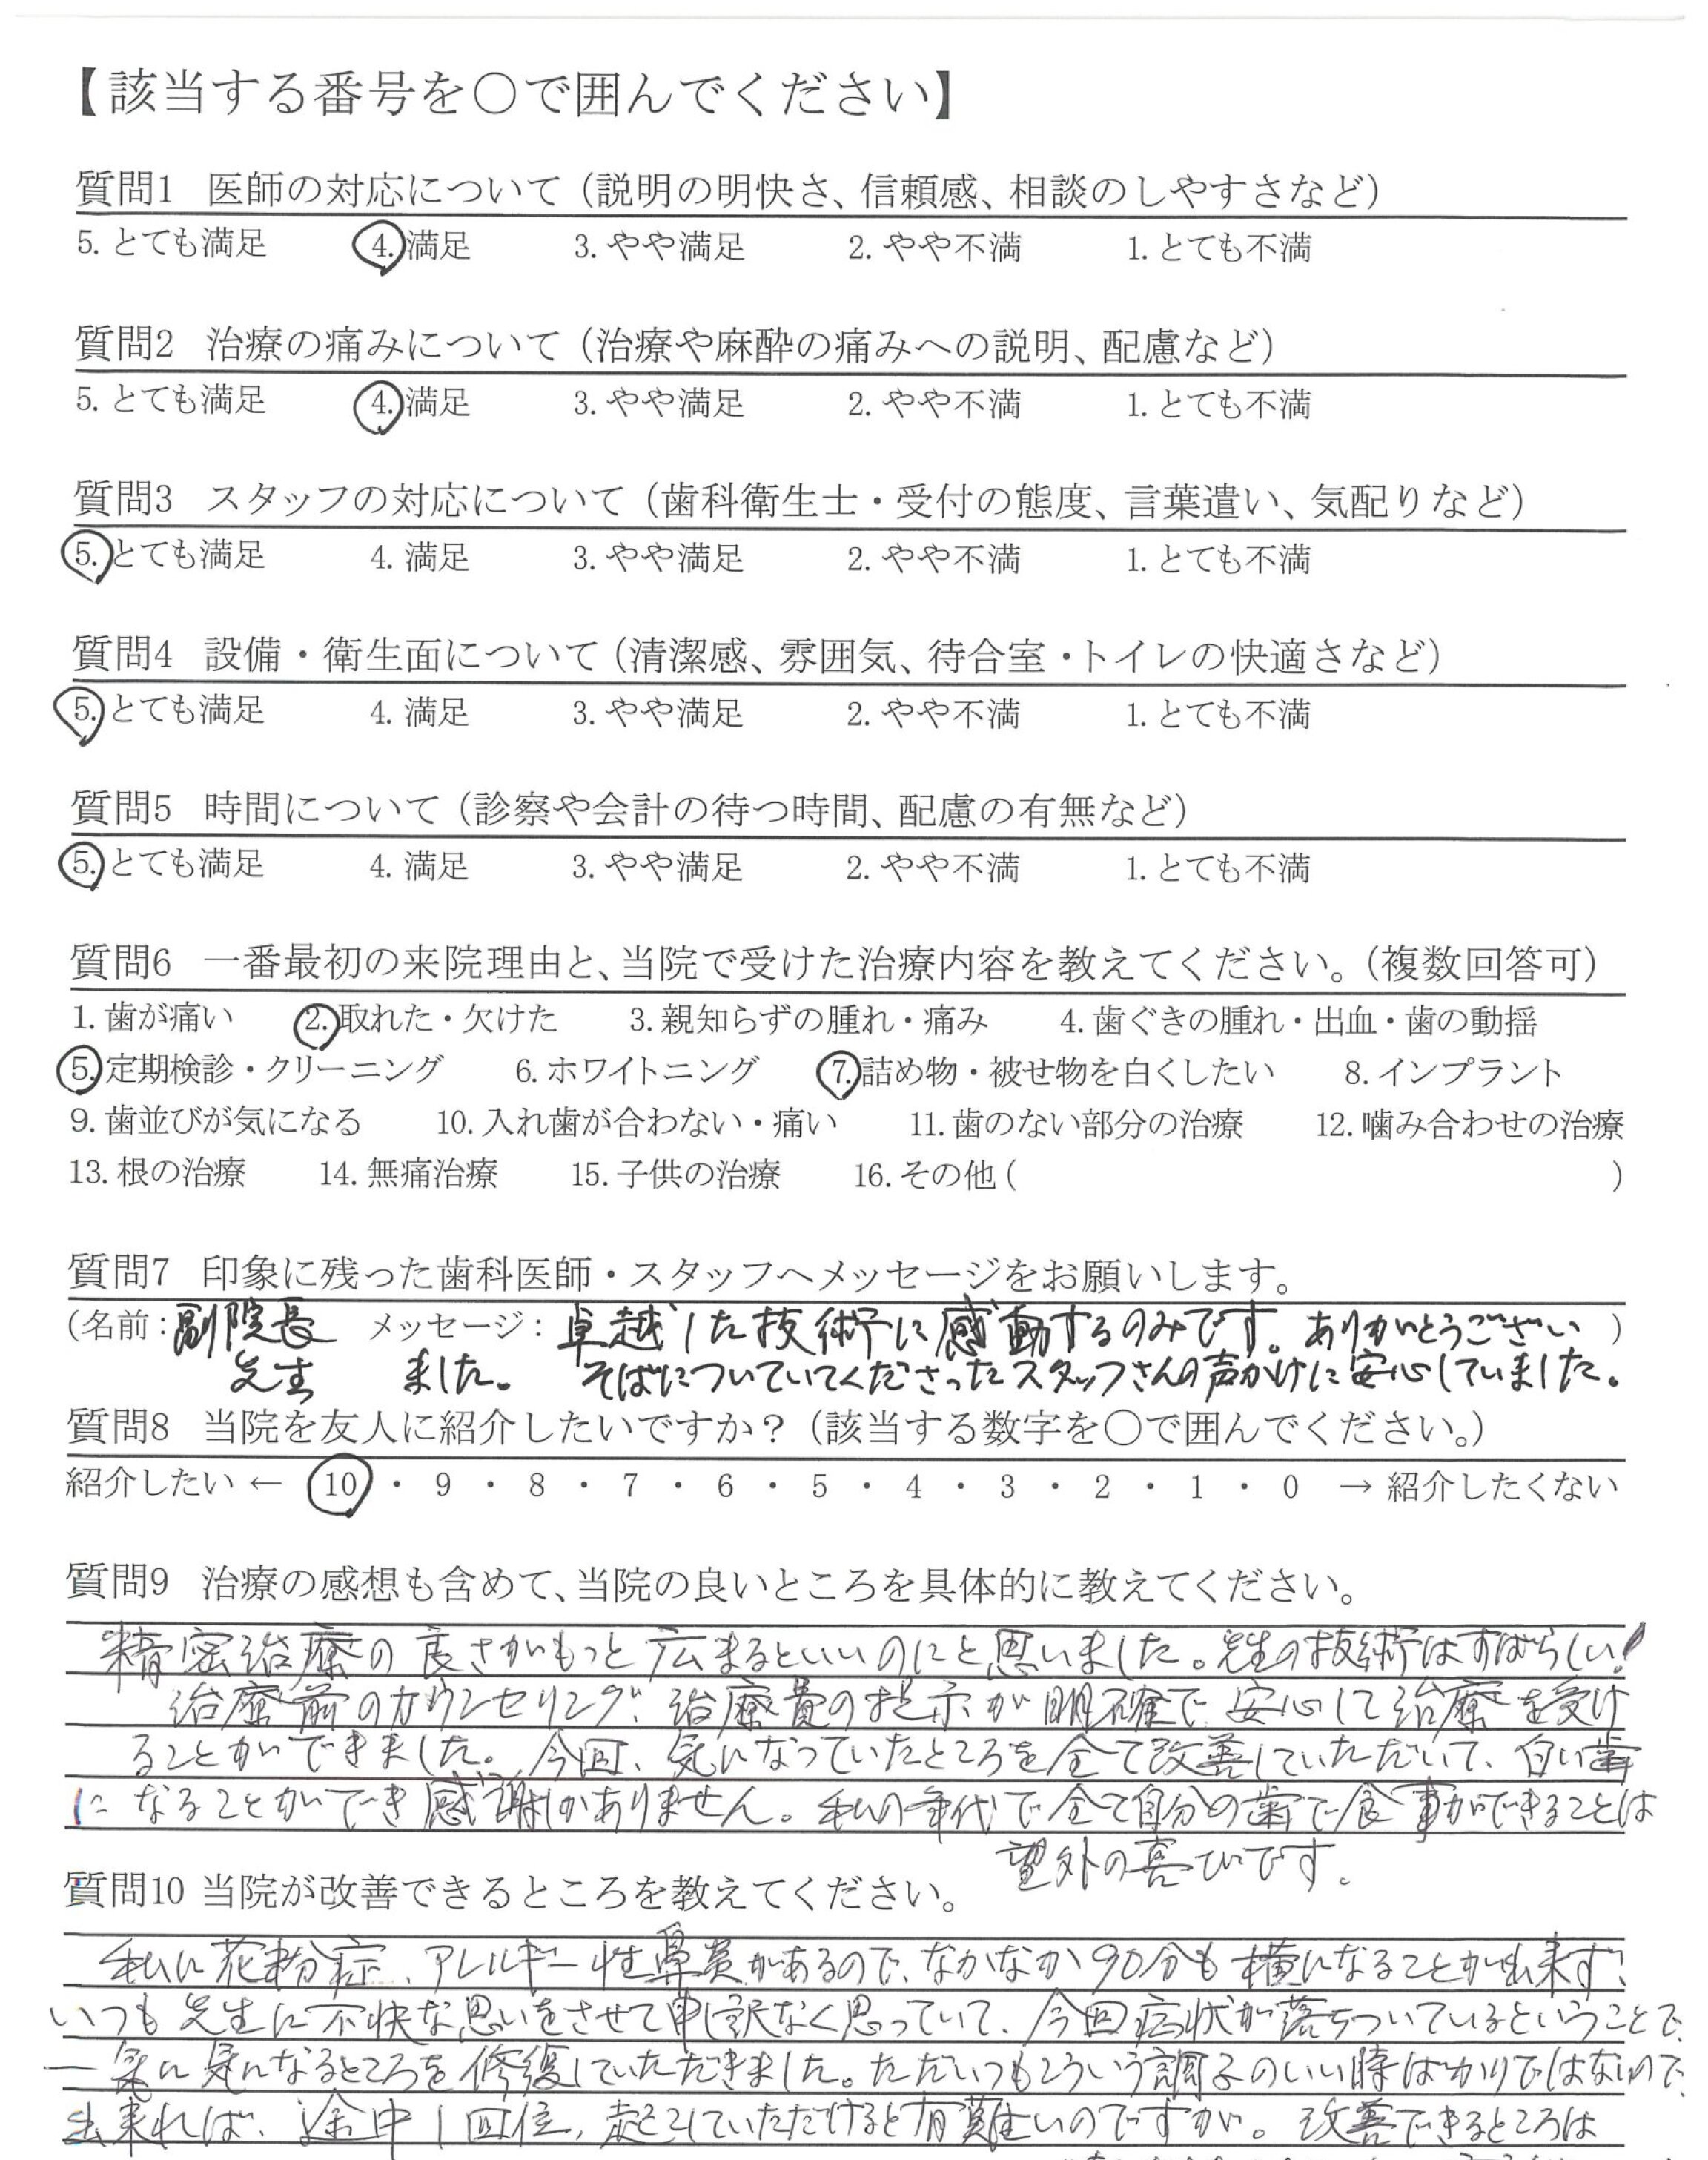 【該当する番号を○で囲んでください】
質問1 医師の対応について（説明の明快さ、信頼感、相談のしやすさなど）
5. とても満足 4. 満足 3. やや満足 2. やや不満 1. とても不満
質問2 治療の痛みについて（治療や麻酔の痛みへの説明、配慮など）
5. とても満足 4. 満足 3. やや満足 2. やや不満 1. とても不満
質問3 スタッフの対応について（歯科衛生士・受付の態度、言葉遣い、気配りなど）
5. とても満足 4. 満足 3. やや満足 2. やや不満 1. とても不満
質問4 設備・衛生面について（清潔感、雰囲気、待合室・トイレの快適さなど）
5. とても満足 4. 満足 3. やや満足 2. やや不満 1. とても不満
質問5 時間について（診察や会計の待つ時間、配慮の有無など）
5. とても満足 4. 満足 3. やや満足 2. やや不満 1. とても不満
質問6 一番最初の来院理由と、当院で受けた治療内容を教えてください。（複数回答可）
1. 歯が痛い 2. 取れた・欠けた 3. 親知らずの腫れ・痛み 4. 歯ぐきの腫れ・出血・歯の動揺
5. 定期検診・クリーニング 6. ホワイトニング 7. 詰め物・被せ物を白くしたい 8. インプラント
9. 歯並びが気になる 10. 入れ歯が合わない・痛い 11. 歯のない部分の治療 12. 噛み合わせの治療
13. 根の治療 14. 無痛治療 15. 子供の治療 16. その他（ ）
質問7 印象に残った歯科医師・スタッフへメッセージをお願いします。
（名前：副院長 メッセージ：卓越した技術に感動するのみです。ありがとうござい）
先生 ました。 そばについていてくださったスタッフさんの声がけに安心していました。
質問8 当院を友人に紹介したいですか？（該当する数字を○で囲んでください。）
紹介したい ← 10 ・ 9 ・ 8 ・ 7 ・ 6 ・ 5 ・ 4 ・ 3 ・ 2 ・ 1 ・ 0 → 紹介したくない
質問9 治療の感想も含めて、当院の良いところを具体的に教えてください。
精密治療の良さがもっと広まるといいのにと思いました。先生の技術はすばらしい！
治療前のカウンセリング、治療費の提示が明確で、安心して治療を受け
ることができました。今回、気になっていたところを全て改善していただいて、白い歯
になることができ感謝しかありません。私の年代で全て自分の歯で食事ができることは
望外の喜びです。
質問10 当院が改善できるところを教えてください。
私に花粉症、アレルギー性鼻炎があるので、なかなか90分も横になることが出来ず、
いつも先生に不快な思いをさせて申し訳なく思っていて、今回病状が落ちついているということで、
一気に気になるところを修復していただきました。ただいつもこういう調子のいい時ばかりではないので、
出来れば、途中1回位、起こしていただけると有難いのですが。改善できるところは